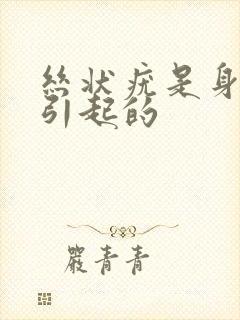 絲状疣是身
引起的
嚴青青